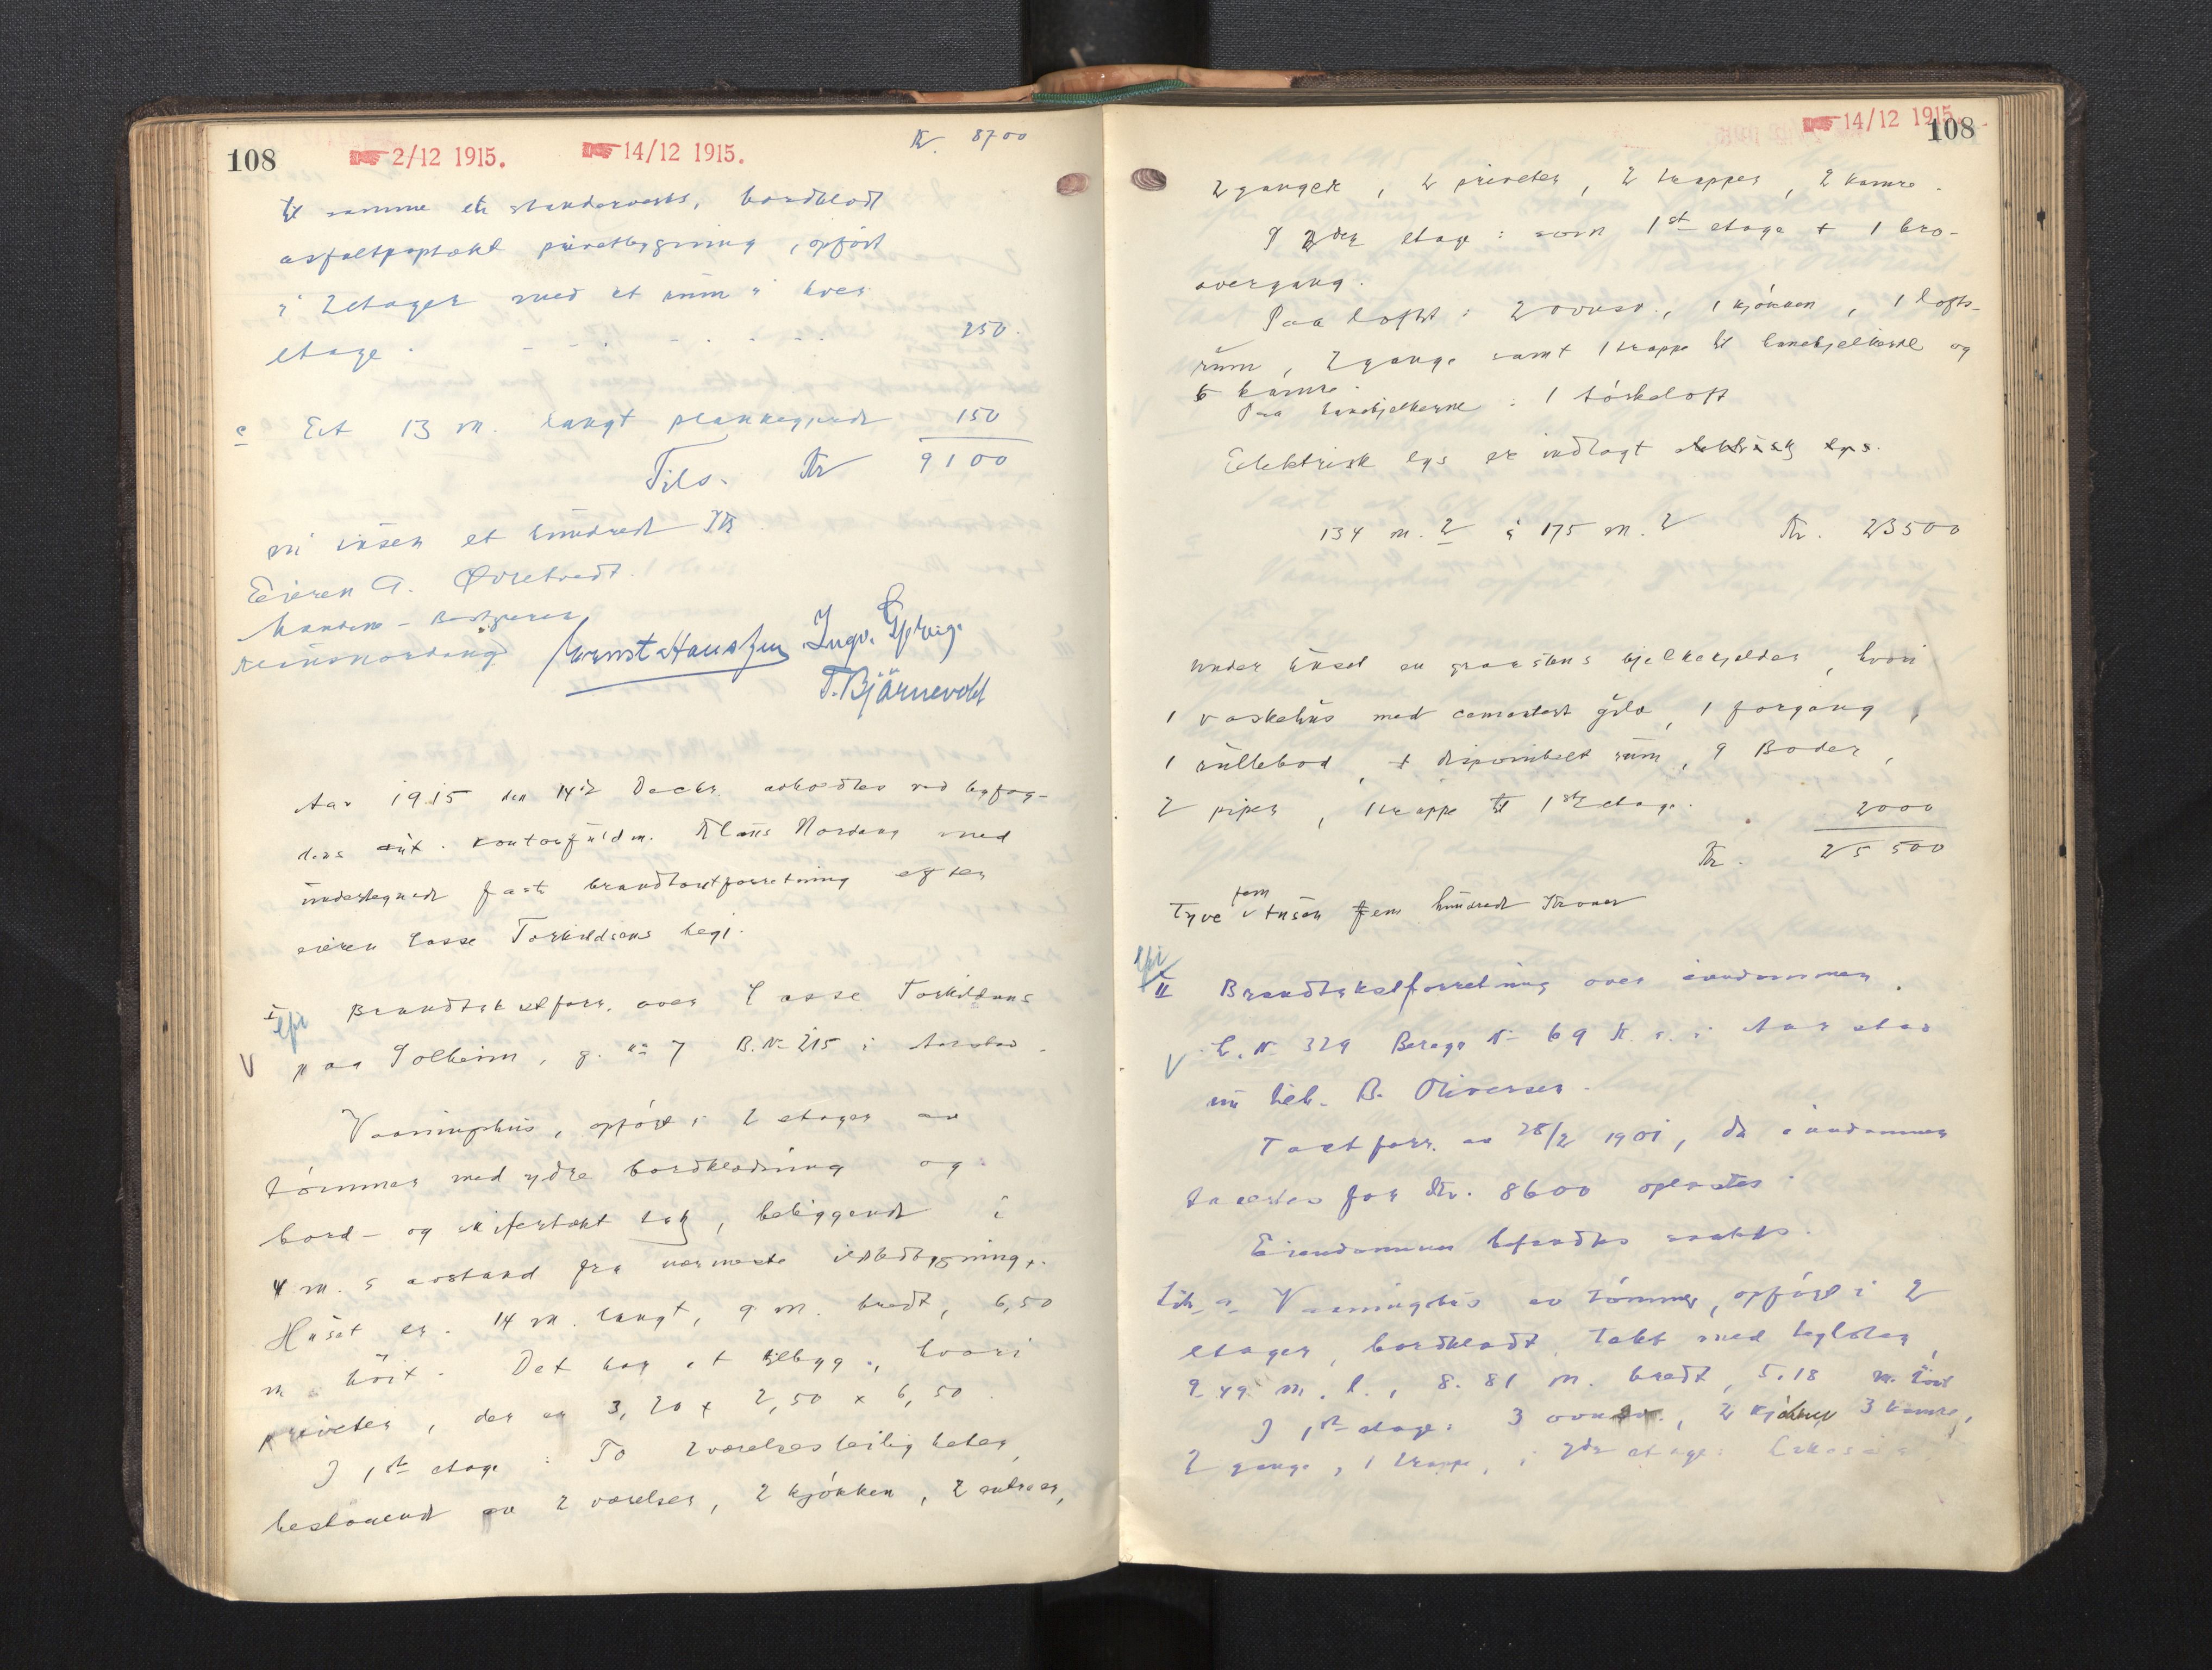 108 2/12 1915. 14/12 1915. Kr. 8700
til samme et standerverks, bordklædt
asfaltpaptækt privetbygning, opført
i 2 etager med et rum i hver
etage. 250.
c Et 13 m. langt plankegjerde 150
Tils. Kr 9100
ni tusen et hundrede Kr
Eieren A. Øvretvedt.
Ernst Hansen Ingv. Gjelvig.
T. Bjärnevold
Aar 1915 den 14de Decbr. avholdtes ved byfog-
dens aut. kontorfuldm. Klaus Nordang med
undertegnede faste brandtaxtforretning efter
eieren Lasse Torkildsens begj.
I Brandtakstforr. over Lasse Torkildsens
V paa Solheim, g. no 7 B. No 215 i Aarstad.
Vaaningshus, opført i 2 etager av
tømmer med ydre bordklædning og
bord- og skifertækt tak, beliggende i
4 m.s avstand fra nærmeste ildstedbygning.
Huset er 14 m. langt, 9 m. bredt, 6,50
m. høit. Det har et tilbygg, hvori
priveter, der er 3,20 x 2,50 x 6,50.
I 1ste etage: To 2 værelsesleiligheter,
bestaaende av 2 værelser, 2 kjøkken, 2 entreer,
14/12 1915. 108
2 ganger, 2 priveter, 2 trapper, 2 kamre.
I 2den etage: som 1ste etage + 1 bro-
overgang.
Paa loftet: 2 ovnsv., 1 kjøkken, 1 lofts-
rum, 2 gange samt 1 trappe til hanebjelkerne og
6 kamre.
Paa hanebjelkerne: 1 tørkeloft
Elektrisk lys er indlagt elektrisk lys.
134 m.2 à 175 m.2 Kr. 23500
Under huset en graastens bjelkekjelder, hvori
1 vaskehus med cementert gulv, 1 forgang,
1 rullebod, + disponibelt rum, 9 Boder,
2 piper, 1 trappe til 1ste etage. 2000
Kr. 25500
Tyve fem tusen fem hundrede Kroner
II Brandtakstforretning over eiendommen
V L. No 329 Beraga No 69 K. s. i Aarstad
nu tilh. B. Oliversen.
Taxtforr. av 28/2 1901, da eiendommen
taxertes for Kr. 8600 oplæstes.
Eiendommen befandtes saaledes.
Litr. a. Vaaningshus av tømmer, opført i 2
etager, bordklædt, tækt med teglsten,
9.49 m. l., 8.81 m. bredt, 5.18 m. høit
I 1ste etage: 3 ovnsv., 2 kjøkken 3 kamre,
2 gange, 1 trappe, i 2den etage: